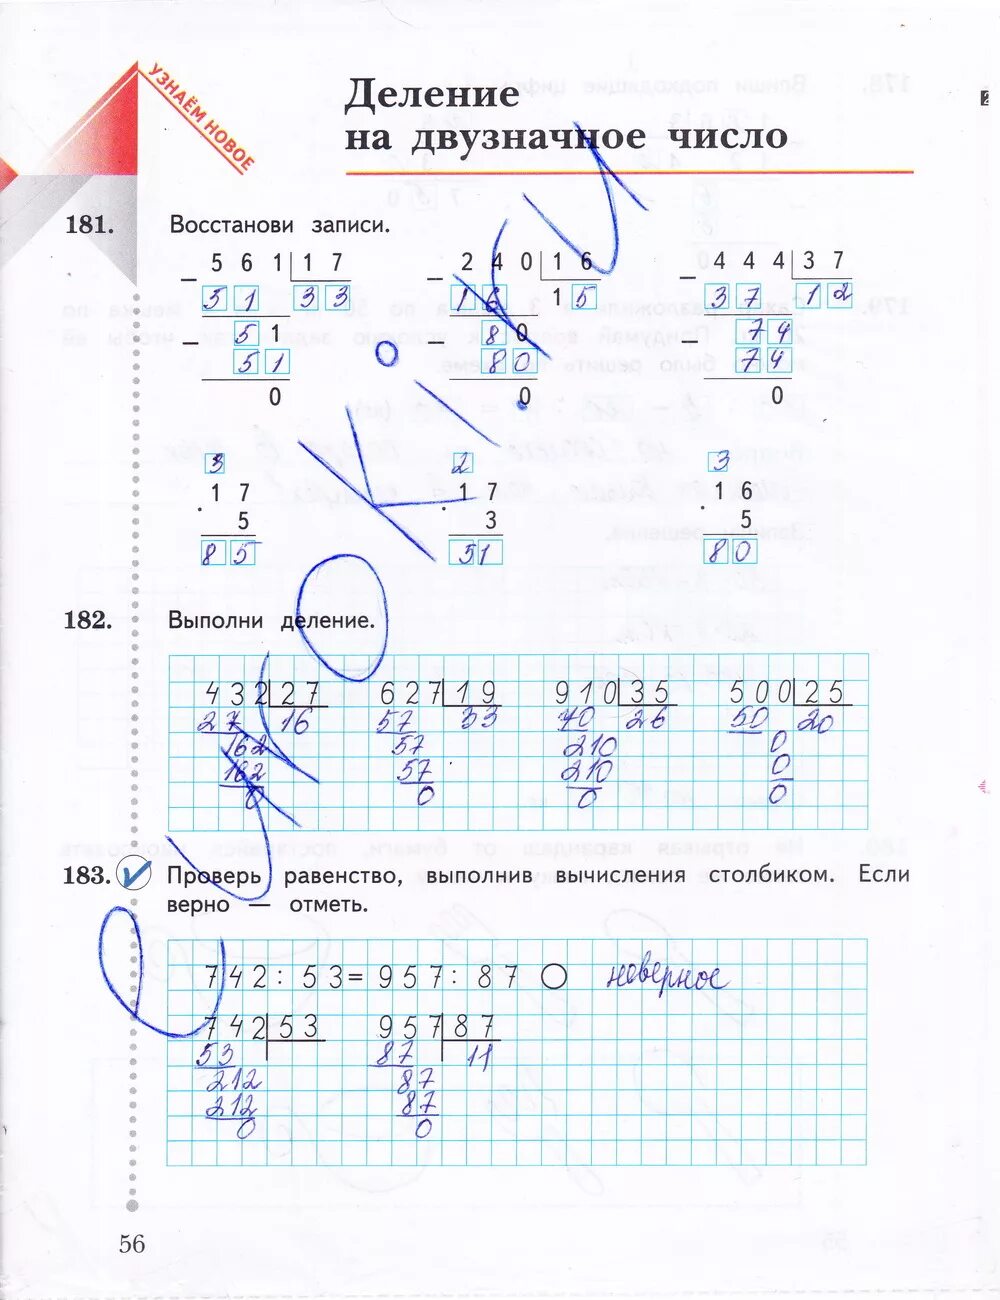 УЗНАЁМ НОВОЕ
Деление
на двузначное число
181. Восстанови записи.
561 17
51 33
51
51
0
240 16
16 15
80
80
0
444 37
37 12
74
74
0
3
17
· 5
85
2
17
· 3
51
3
16
· 5
80
182. Выполни деление.
432 27
27 16
162
162
0
627 19
57 33
57
57
0
910 35
70 26
210
210
0
500 25
50 20
0
0
0
183. Проверь равенство, выполнив вычисления столбиком. Если
верно — отметь.
742 : 53 = 957 : 87 неверное
742 53
53
212
212
0
957 87
87 11
87
87
0
56